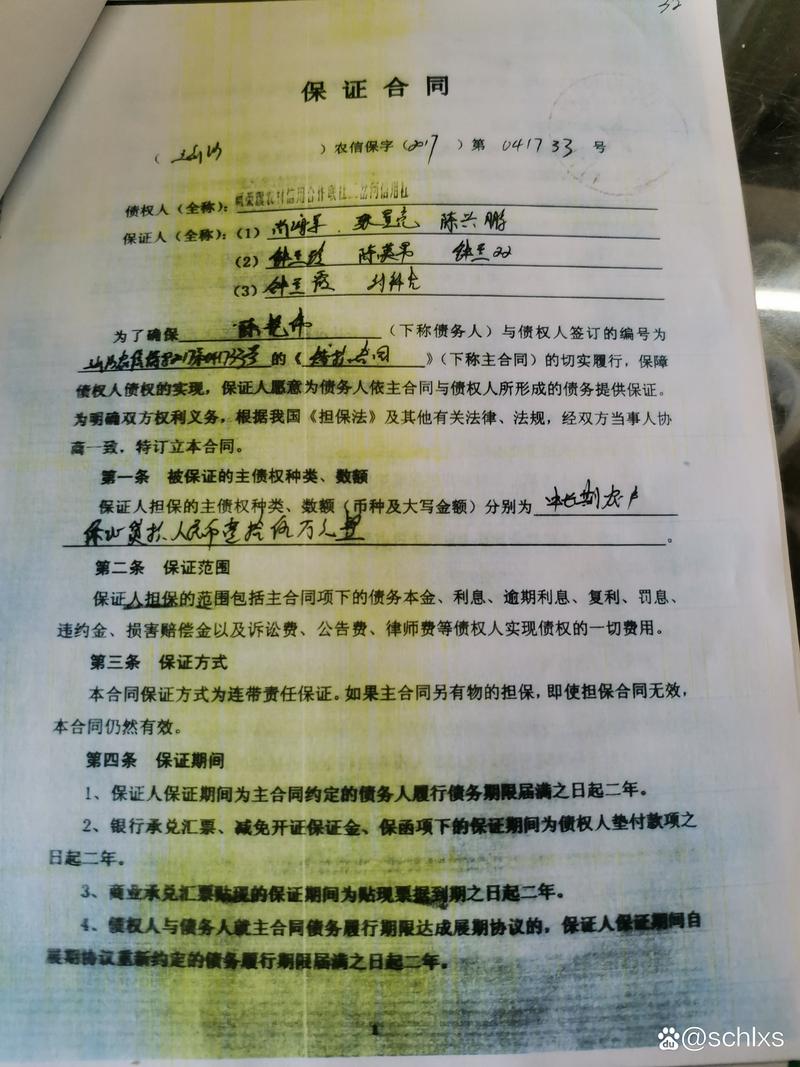 32
保证合同
( )农信保字(2017)第 041733 号
债权人(全称):
保证人(全称):(1) 陈兴鹏
(2) 钟兰珍 陈英男 钟兰双
(3) 钟兰霞
为了确保 (下称债务人)与债权人签订的编号为
2017年041733号 的《 借款合同 》(下称主合同)的切实履行,保障
债权人债权的实现,保证人愿意为债务人依主合同与债权人所形成的债务提供保证。
为明确双方权利义务,根据我国《担保法》及其他有关法律、法规,经双方当事人协
商一致,特订立本合同。
第一条 被保证的主债权种类、数额
保证人担保的主债权种类、数额(币种及大写金额)分别为 中长期农户
保证贷款人民币壹拾伍万元整。
第二条 保证范围
保证人担保的范围包括主合同项下的债务本金、利息、逾期利息、复利、罚息、
违约金、损害赔偿金以及诉讼费、公告费、律师费等债权人实现债权的一切费用。
第三条 保证方式
本合同保证方式为连带责任保证。如果主合同另有物的担保,即使担保合同无效,
本合同仍然有效。
第四条 保证期间
1、保证人保证期间为主合同约定的债务人履行债务期限届满之日起二年。
2、银行承兑汇票、减免开证保证金、保函项下的保证期间为债权人垫付款项之
日起二年。
3、商业承兑汇票贴现的保证期间为贴现票据到期之日起二年。
4、债权人与债务人就主合同债务履行期限达成展期协议的,保证人保证期间自
展期协议重新约定的债务履行期限届满之日起二年。
1
du@schlxs